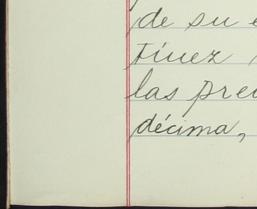 de su
tínez
las pre
décima,